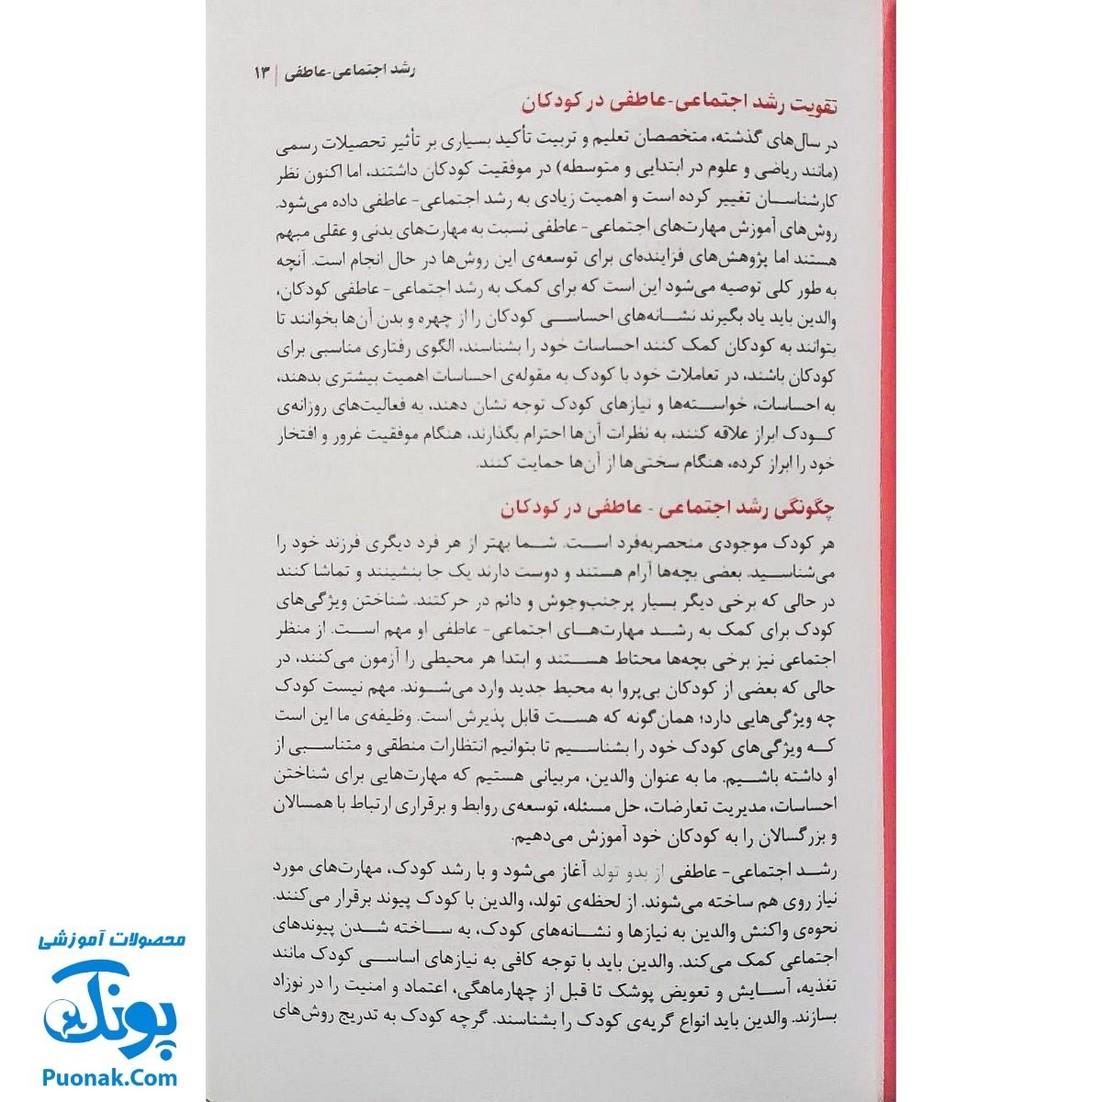 رشد اجتماعی-عاطفی | ۱۳
تقویت رشد اجتماعی-عاطفی در کودکان
در سال‌های گذشته، متخصصان تعلیم و تربیت تأکید بسیاری بر تأثیر تحصیلات رسمی
(مانند ریاضی و علوم در ابتدایی و متوسطه) در موفقیت کودکان داشتند، اما اکنون نظر
کارشناسان تغییر کرده است و اهمیت زیادی به رشد اجتماعی- عاطفی داده می‌شود.
روش‌های آموزش مهارت‌های اجتماعی- عاطفی نسبت به مهارت‌های بدنی و عقلی مبهم
هستند اما پژوهش‌های فزاینده‌ای برای توسعه‌ی این روش‌ها در حال انجام است. آنچه
به طور کلی توصیه می‌شود این است که برای کمک به رشد اجتماعی- عاطفی کودکان،
والدین باید یاد بگیرند نشانه‌های احساسی کودکان را از چهره و بدن آن‌ها بخوانند تا
بتوانند به کودکان کمک کنند احساسات خود را بشناسند، الگوی رفتاری مناسبی برای
کودکان باشند، در تعاملات خود با کودک به مقوله‌ی احساسات اهمیت بیشتری بدهند،
به احساسات، خواسته‌ها و نیازهای کودک توجه نشان دهند، به فعالیت‌های روزانه‌ی
کودک ابراز علاقه کنند، به نظرات آن‌ها احترام بگذارند، هنگام موفقیت غرور و افتخار
خود را ابراز کرده، هنگام سختی‌ها از آن‌ها حمایت کنند.
چگونگی رشد اجتماعی - عاطفی در کودکان
هر کودک موجودی منحصربه‌فرد است. شما بهتر از هر فرد دیگری فرزند خود را
می‌شناسید. بعضی بچه‌ها آرام هستند و دوست دارند یک جا بنشینند و تماشا کنند
در حالی که برخی دیگر بسیار پرجنب‌وجوش و دائم در حرکتند. شناختن ویژگی‌های
کودک برای کمک به رشد مهارت‌های اجتماعی- عاطفی او مهم است. از منظر
اجتماعی نیز برخی بچه‌ها محتاط هستند و ابتدا هر محیطی را آزمون می‌کنند، در
حالی که بعضی از کودکان بی‌پروا به محیط جدید وارد می‌شوند. مهم نیست کودک
چه ویژگی‌هایی دارد؛ همان‌گونه که هست قابل پذیرش است. وظیفه‌ی ما این است
که ویژگی‌های کودک خود را بشناسیم تا بتوانیم انتظارات منطقی و متناسبی از
او داشته باشیم. ما به عنوان والدین، مربیانی هستیم که مهارت‌هایی برای شناختن
احساسات، مدیریت تعارضات، حل مسئله، توسعه‌ی روابط و برقراری ارتباط با همسالان
و بزرگسالان را به کودکان خود آموزش می‌دهیم.
رشد اجتماعی- عاطفی از بدو تولد آغاز می‌شود و با رشد کودک، مهارت‌های مورد
نیاز روی هم ساخته می‌شوند. از لحظه‌ی تولد، والدین با کودک پیوند برقرار می‌کنند.
نحوه‌ی واکنش والدین به نیازها و نشانه‌های کودک، به ساخته شدن پیوندهای
اجتماعی کمک می‌کند. والدین باید با توجه کافی به نیازهای اساسی کودک مانند
تغذیه، آسایش و تعویض پوشک تا قبل از چهارماهگی، اعتماد و امنیت را در نوزاد
بسازند. والدین باید انواع گریه‌ی کودک را بشناسند. گرچه کودک به تدریج روش‌های
محصولات آموزشی
پونک
Puonak.Com